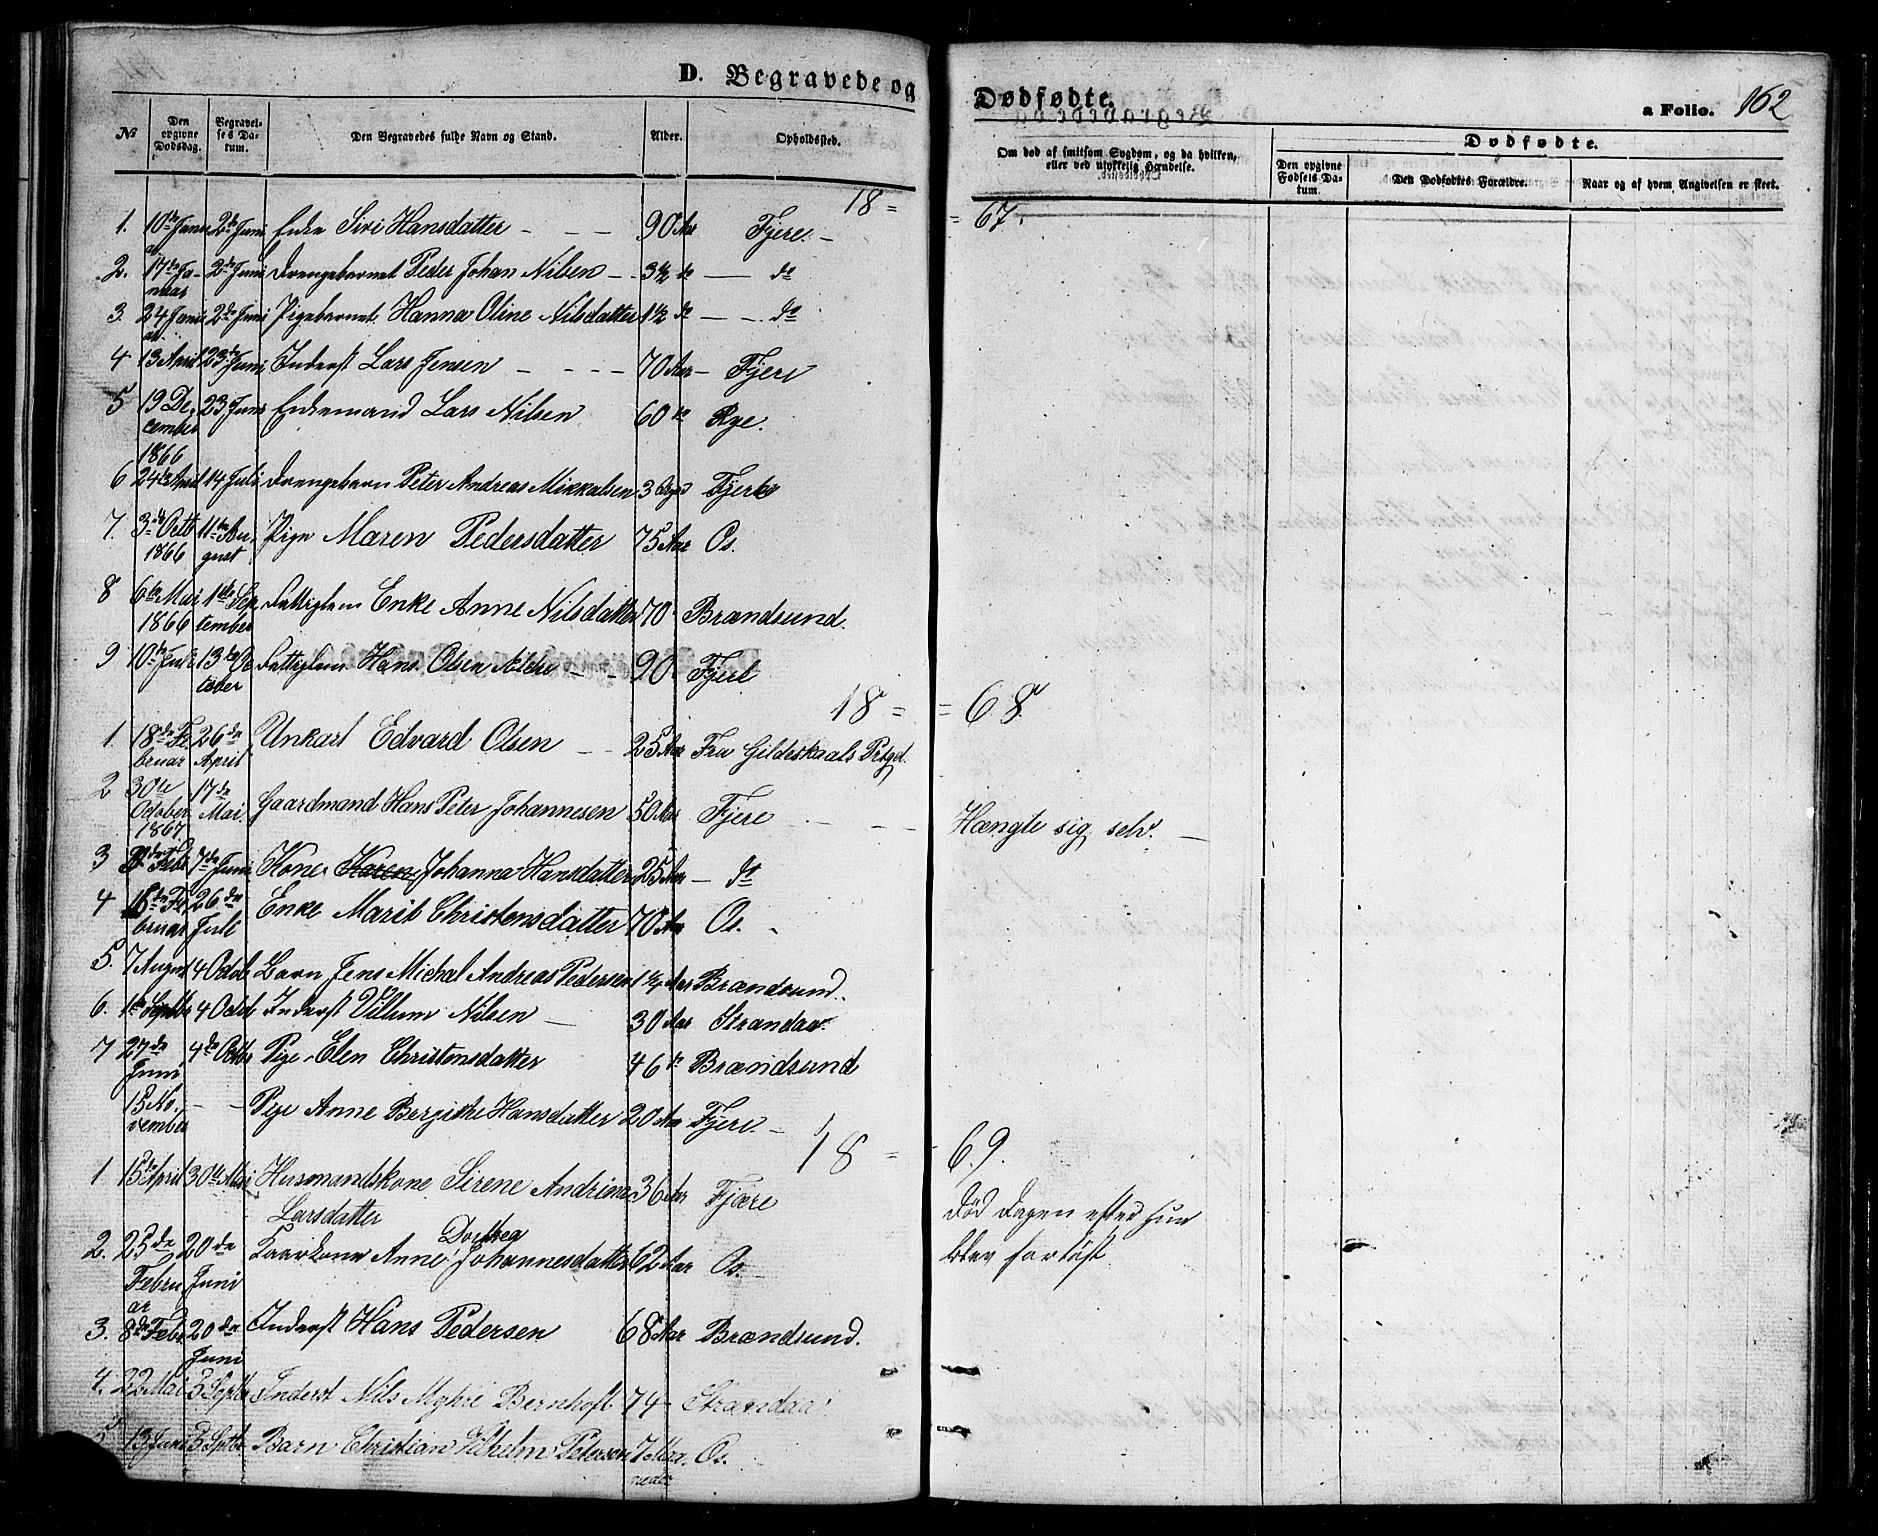 D. Begravede og Dødfødte. a Folio. 162
№ Den opgivne Dødsdag. Begravelses Datum. Den Begravedes fulde Navn og Stand. Alder. Opholdssted. Om død af smitsom Sygdom, og da hvilken, eller ved ulykkelig Hændelse. Dødfødte.
Den opgivne Fødsels Datum. Den Dødfødtes Forældre. Naar og af hvem Angivelsen er skeet.
18 = = 67.
1. 10de Januar 2de Juni Enke Siri Hansdatter - - - 90 Aar Fjere. -
2. 17de Januar 2de Juni Drengebarnet Peder Johan Nilsen - - 3½ do - do
3. 24 Januar. 2de Juni Pigebarnet Hanna Oline Nilsdatter 1½ do - - do
4 13 April 23de Juni Inderst Lars Jensen - - - - 70 Aar - Fjere
5 19 December 1866 23 Juni Enkemand Lars Nilsen 60 do Rye.
6 24de April 14 Juli Drengebarn Peter Andreas Mikkalsen 3 Fjere
7. 3de Octb 1866 11te August Pige Maren Pedersdatter 75 Aar Os.
8 6te Mai 1866 1ste September Fattiglem Enke Anne Nilsdatter 70 Brændsund.
9 10de Juli 13de October Fattiglem Hans Olsen - - 90 Fjere
18 = = 68
1. 18de Februar 26de April Unkarl Edvard Olsen - - 25 Aar Fra Gildeskaals Prgd.
2 30te October 1867 17de Mai Gaardmand Hans Peter Johannesen 50 Aar Fjere - - - Hængte sig selv. -
3 Febr 7de Juni Kone Karen Johanna Hansdatter 25 Aar - do
4 18de Februar 26de Juli Enke Marit Christensdatter 70 Aar Os. -
5. 7 August 4 Octob Barn Jens Michal Andreas Pedersen 1 Aar Brændsund.
6. 1ste Septbr 4 Octob Inderst Villum Nilsen - 30 Aar Strandaa
7 27de Juni 4de Octbr Pige Elen Christensdatter 46 do Brændsund
15 November - - Pige Anne Bergitte Hansdatter 20 Aar Fjere. -
18 = 69.
1 15de April 30te Mai Husmandskone Sirene Andrina 36 Aar Fjære Død Dagen efter hun
Larsdatter blev forløst.
Dorthea
2. 25de Februar 20de Juni Kaarkone Anne Johannesdatter 62 Aar Os.
3. 8de Febr 20de Juni Inderst Hans Pedersen 68 Aar Brændsund.
4. 22 Mai 5 Septbr Inderst Nils Myhre Bernhoft 74 - Strandaa
5 13 Juni 5 Septbr Barn Christian Vilhelm Petersen 7 Maaneder Os.